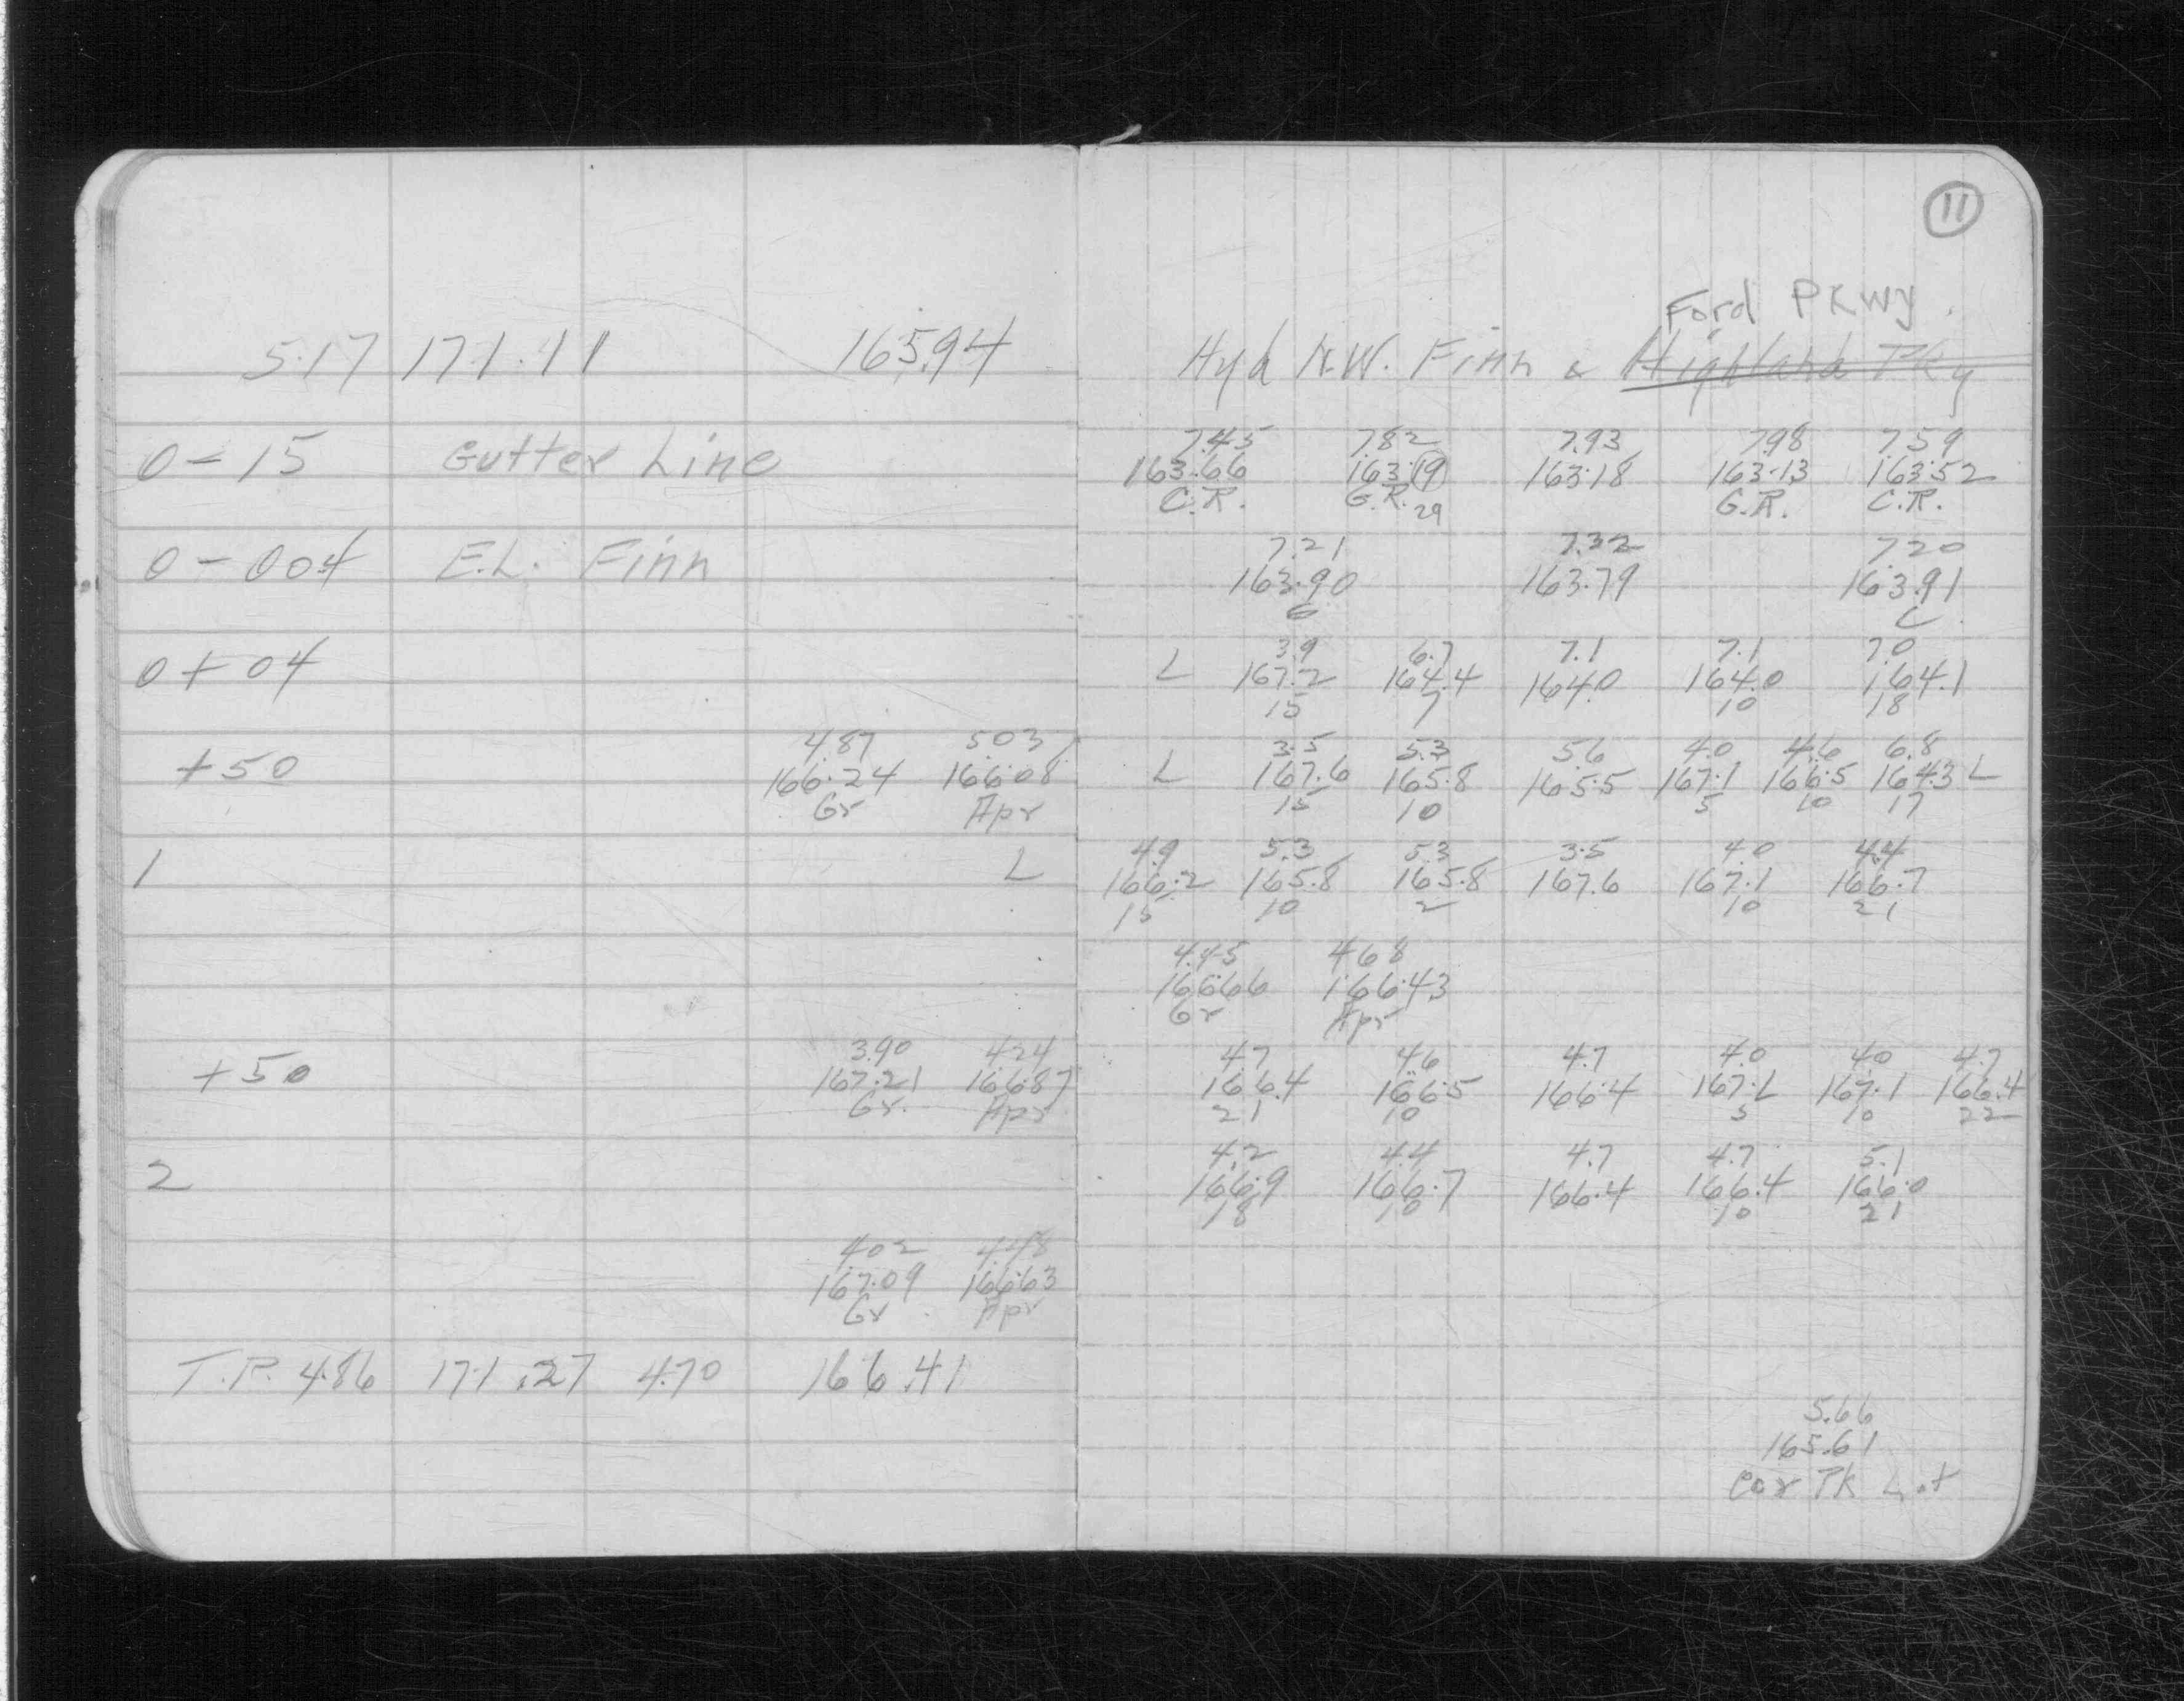 11
Ford PKwy.
5.17 171.11 165.94 Hyd N.W. Finn & Highland Pky
7.45 7.82 7.93 7.98 7.59
0-15 Gutter Line 163.66 163.19 163.18 163.13 163.52
C.R. G.R. 29 G.R. C.R.
7.21 7.32 7.20
0-004 E.L. Finn 163.90 163.79 163.91
C C
3.9 6.7 7.1 7.1 7.0
0+04 L 167.2 164.4 164.0 164.0 164.1
15 7 10 18
4.87 5.03 3.5 5.3 5.6 4.0 4.6 6.8
+50 166.24 166.08 L 167.6 165.8 165.5 167.1 166.5 164.3 L
Gr Apr 15 10 5 10 17
4.9 5.3 5.3 3.5 4.0 4.4
1 L 166.2 165.8 165.8 167.6 167.1 166.7
15 10 2 10 21
4.45 4.68
166.66 166.43
Gr Apr
3.90 4.24 4.7 4.6 4.7 4.0 4.0 4.7
+50 167.21 166.87 166.4 166.5 166.4 167.1 167.1 166.4
Gr. Apr 21 10 5 10 22
4.2 4.4 4.7 4.7 5.1
2 166.9 166.7 166.4 166.4 166.0
18 10 10 21
4.02 4.48
167.09 166.63
Gr Apr
T.P. 4.86 171.27 4.70 166.41
5.66
165.61
Cor Pk Lot